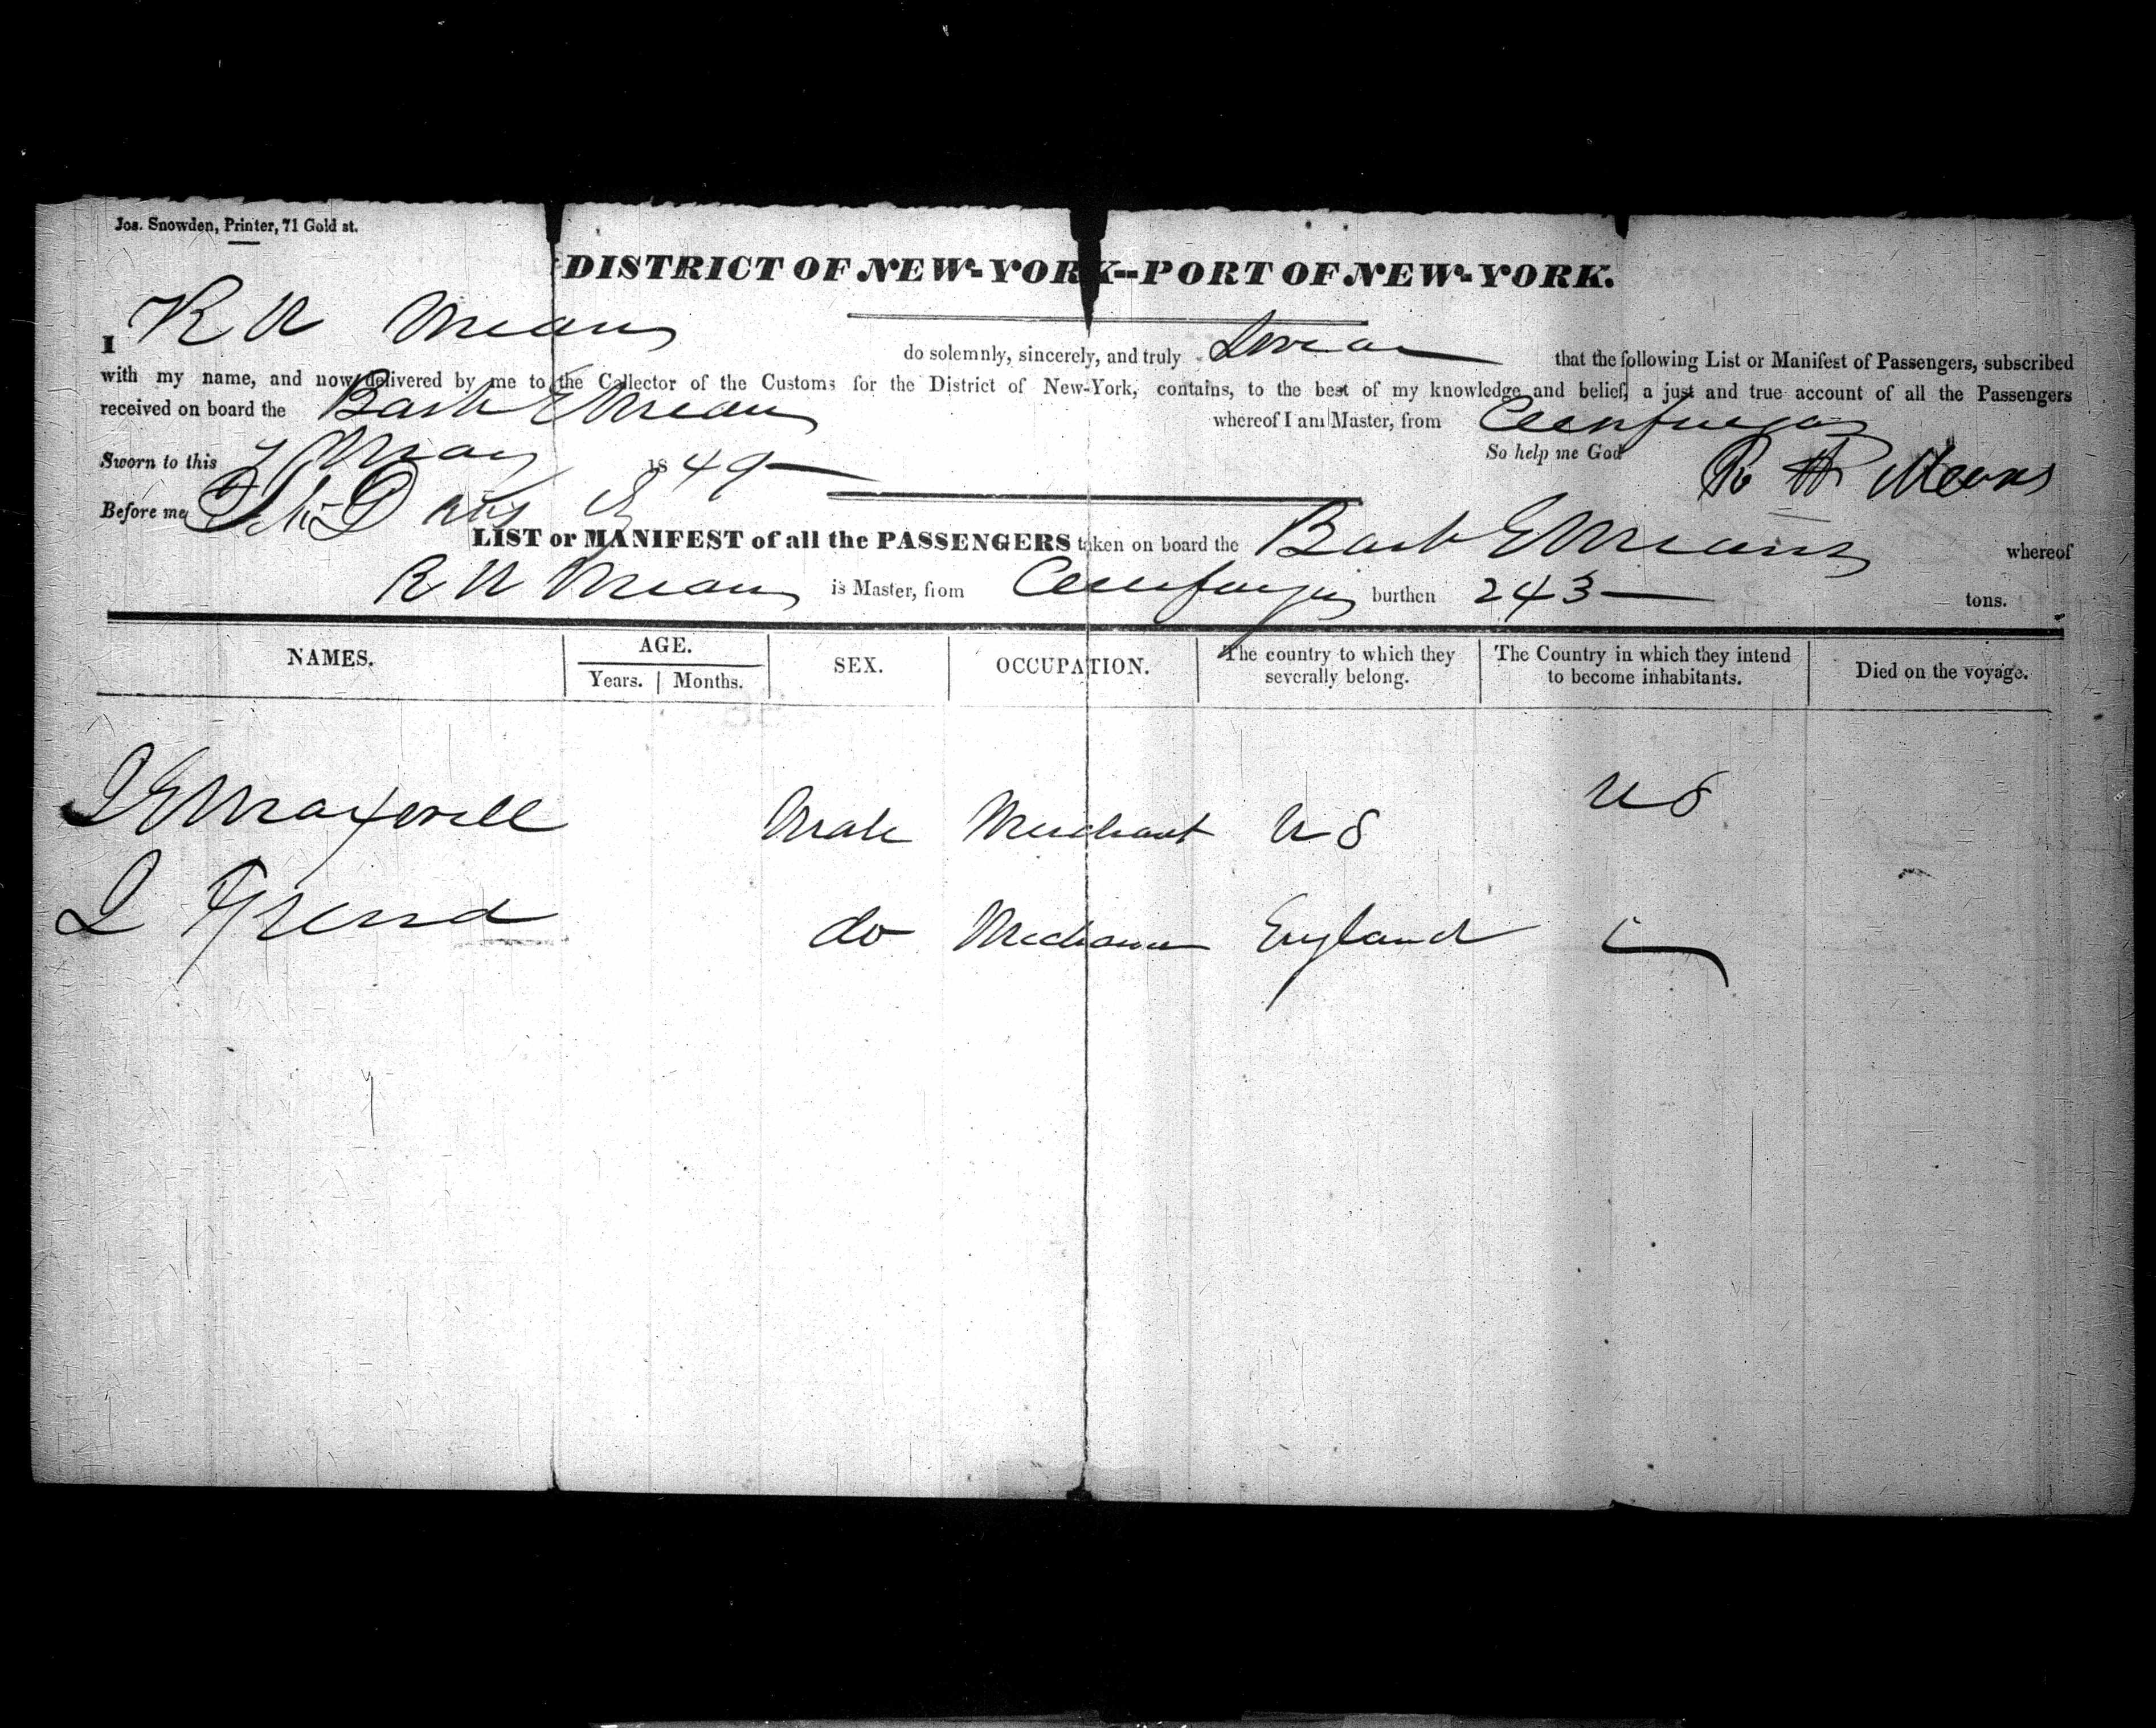 Jos. Snowden, Printer, 71 Gold st.
DISTRICT OF NEW-YORK--PORT OF NEW-YORK.
I R H Means do solemnly, sincerely, and truly Swear that the following List or Manifest of Passengers, subscribed
with my name, and now delivered by me to the Collector of the Customs for the District of New-York, contains, to the best of my knowledge and belief, a just and true account of all the Passengers
received on board the Bark E Means whereof I am Master, from Cienfuegos
Sworn to this 7 May 1849 So help me God R H Means
Before me
LIST or MANIFEST of all the PASSENGERS taken on board the Bark E Means whereof
R H Means is Master, from Cienfuegos burthen 243 tons.
NAMES. AGE. Years. Months. SEX. OCCUPATION. The country to which they severally belong. The Country in which they intend to become inhabitants. Died on the voyage.
J E Maxwell Male Merchant U S U S
do Mechanic England